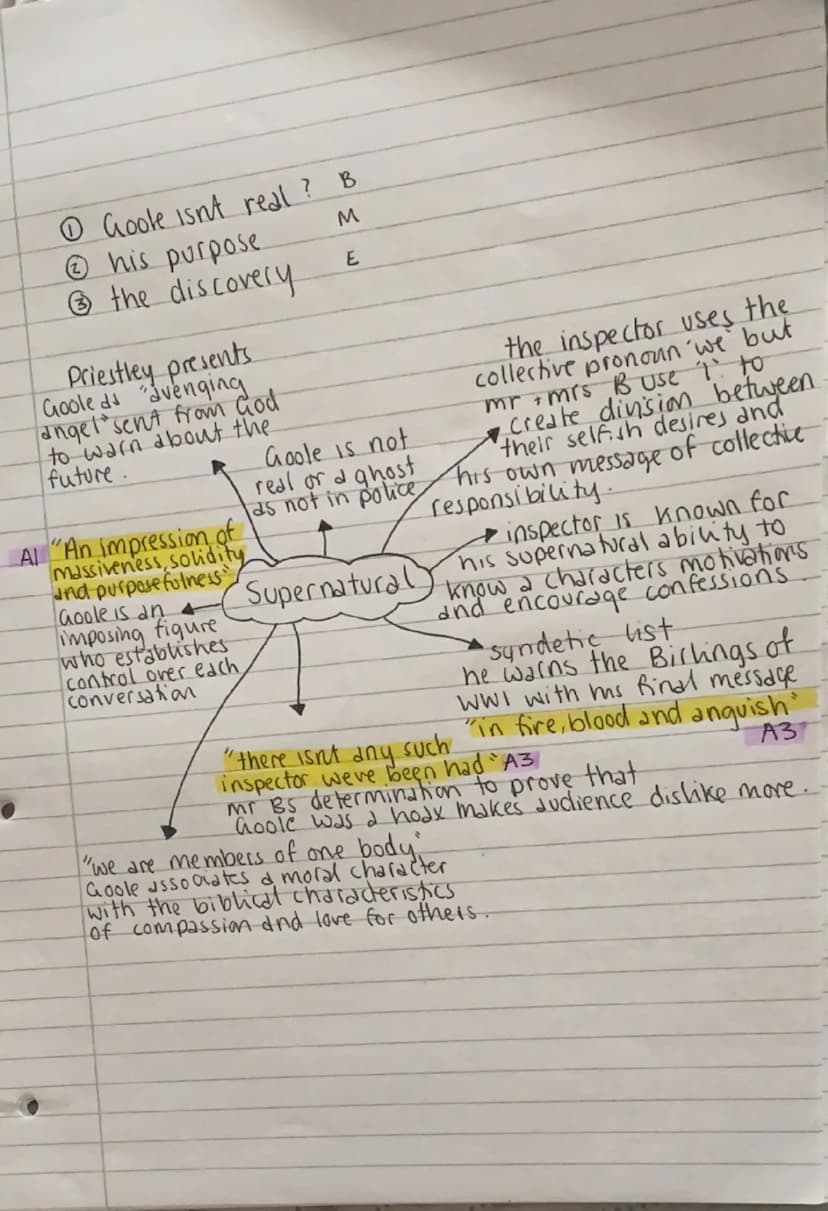 ① Goole isnt real? B
② his purpose M
③ the discovery E
Priestley presents
Goole as "avenging
angel" sent from God
to warn about the
future.
Goole is not
real or a ghost
as not in police
the inspector uses the
collective pronoun 'we' but
mr + mrs B use 'I' to
create division between
their selfish desires and
his own message of collective
responsibility.
A1 "An impression of
massiveness, solidity
and purposefulness"
Goole is an
imposing figure
who establishes
control over each
conversation
Supernatural
inspector is known for
his supernatural ability to
know a characters motivations
and encourage confessions.
syndetic list
he warns the Birlings of
WW1 with his final message
"in fire, blood and anguish"
A3
"there isnt any such
inspector weve been had" A3
mr Bs determination to prove that
Goole was a hoax makes audience dislike more.
"we are members of one body"
Goole associates a moral character
with the biblical characteristics
of compassion and love for others.